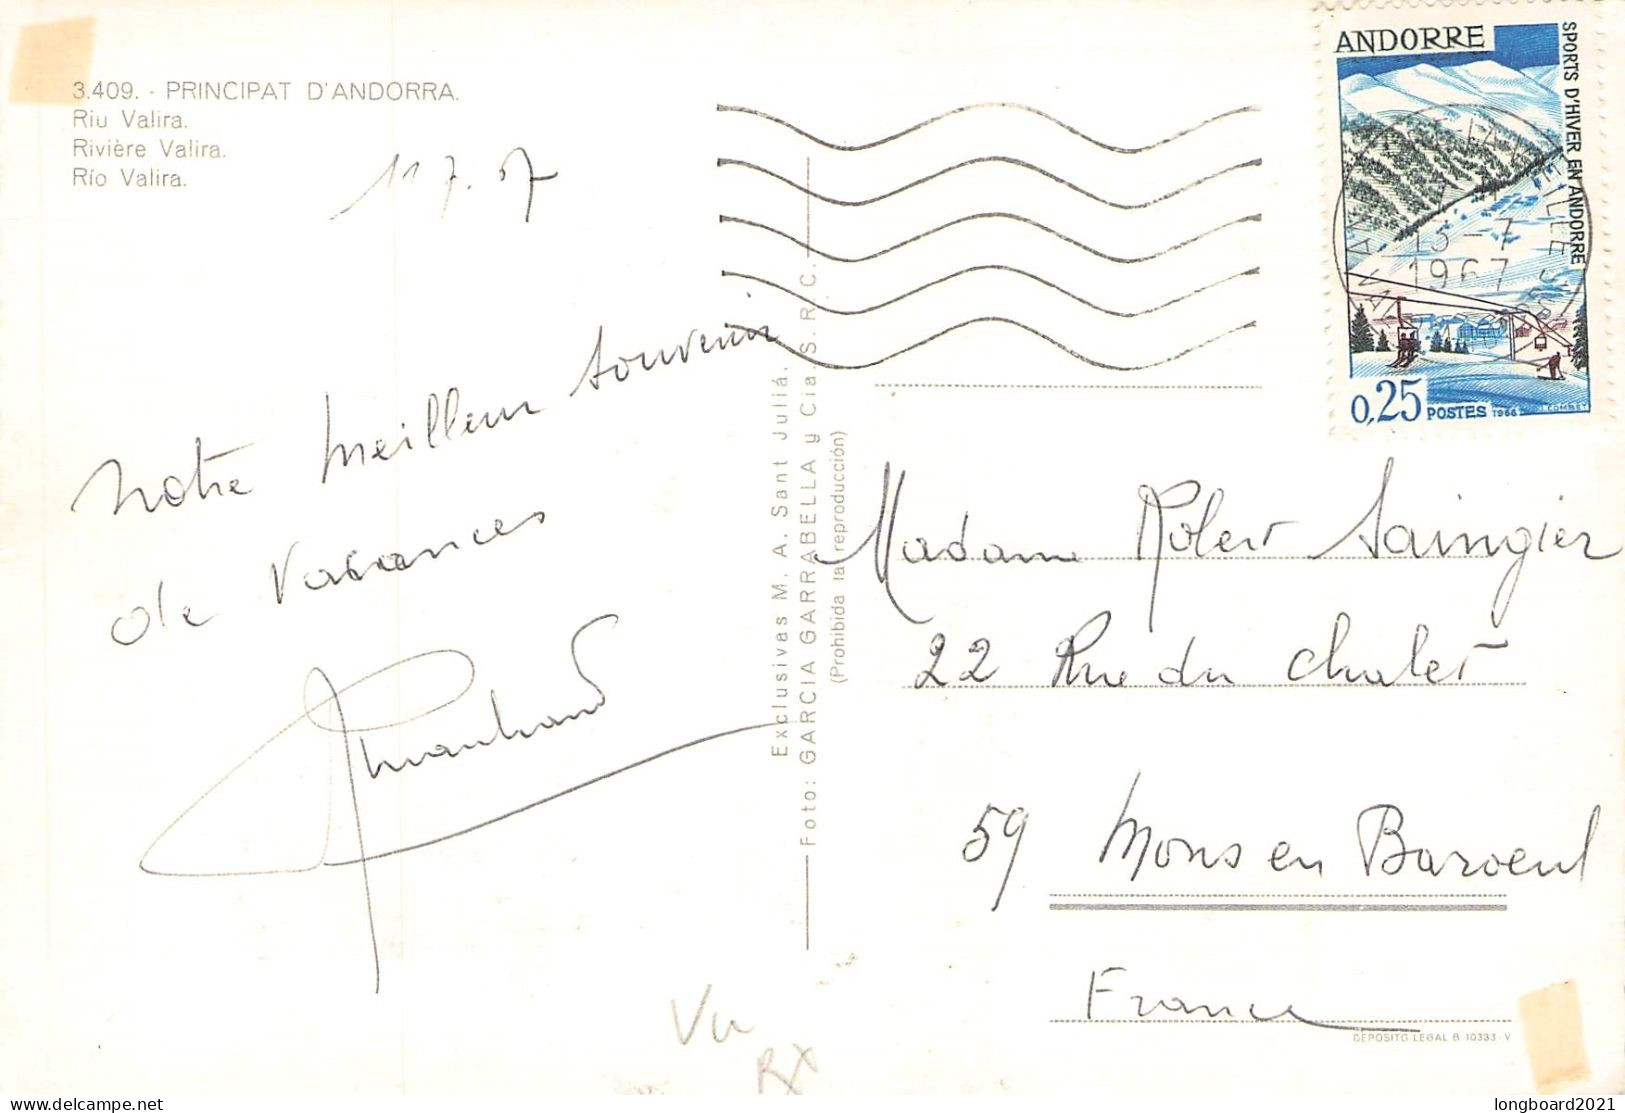 3.409. - PRINCIPAT D'ANDORRA.
Riu Valira.
Rivière Valira.
Río Valira.
11 7. 67
Notre meilleur souvenir
de vacances
Exclusivas M. A. Sant Juliá.
Foto: GARCIA GARRABELLA y Cia S.R.C.
(Prohibida la reproducción)
ANDORRE
SPORTS D'HIVER EN ANDORRE
0,25 POSTES 1966 COMBET
ANDORRE LA VIEILLE
13 - 7
1967
Madame Robert Saingier
22 Rue du Chalet
59 Mons en Baroeul
France
DEPOSITO LEGAL B 10333-V
Vu
RX
longboard2021